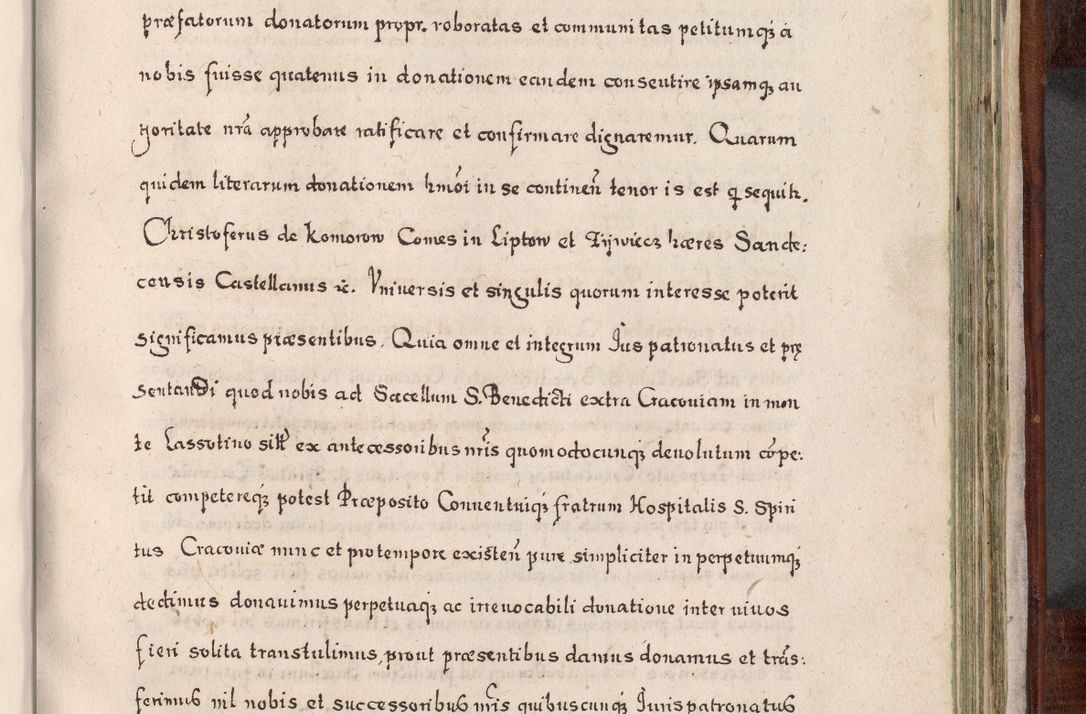 præfatorum donatorum propr. roboratas et communitas petitumq́ꝫ à
nobis fuisse quatenus in donationem eandem consentire ipsamqꝫ au
toritate nrã approbare ratificare et confirmare dignaremur. Quarum
quidem literarum donationem hmõi in se continen̄ tenor is est q̃ sequitr.
Christoferus de Komorow Comes in Liptow et Zÿwiecz hæres Sande:
censis Castellanus ꝛc. Vniuersis et singulis quorum interesse poterit
significamus præsentibus. Quia omne et integrum Jus patronatus et præ
sentandi quod nobis ad Sacellum S. Benedicti extra Cracouiam in mon
te Lassotino sitt̃ ex antecessoribus nr̃is quomodocunq́ꝫ deuolutum cõpe:
tit competereq́ꝫ potest Præposito Conuentuiq́ꝫ fratrum Hospitalis S. Spiri
tus Cracouiæ nunc et pro tempore existen̄ pure simpliciter in perpetuumq́ꝫ
dedimus donauimus perpetuaq́ꝫ ac irreuocabili donatione inter viuos
fieri solita transtulimus, prout præsentibus damus donamus et trãs:
ferimus nil nobis et successoribus nr̃is quibuscunq́ꝫ Juris patronatus